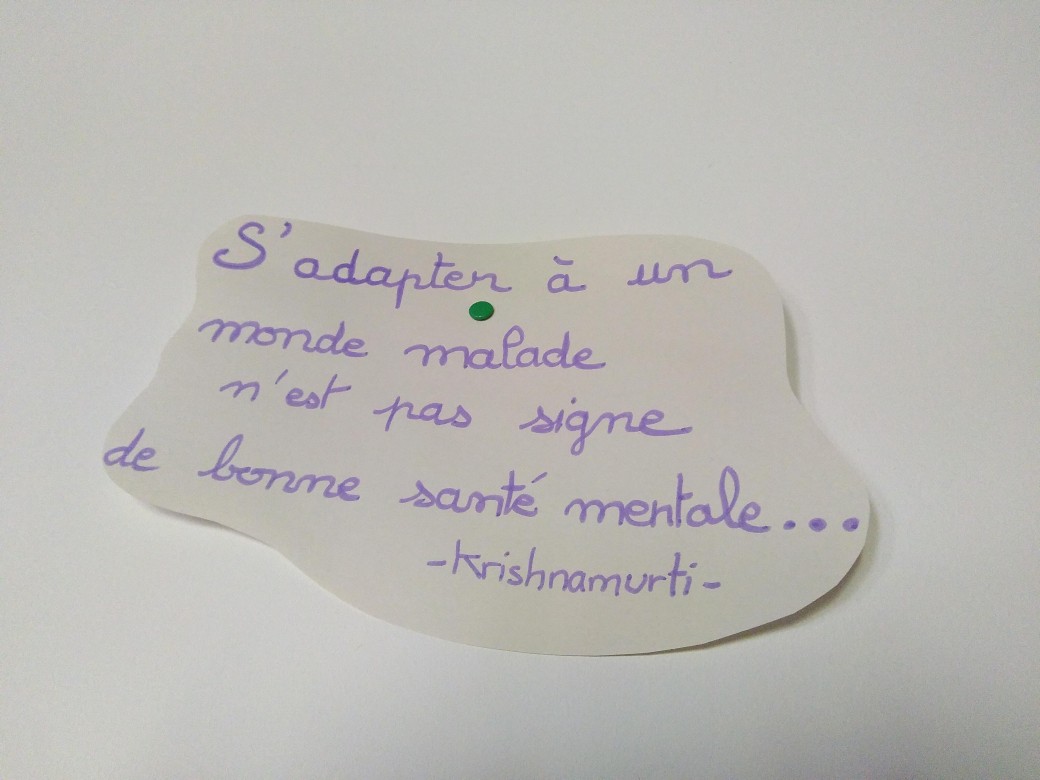 S'adapter à un
monde malade
n'est pas signe
de bonne santé mentale...
-Krishnamurti-